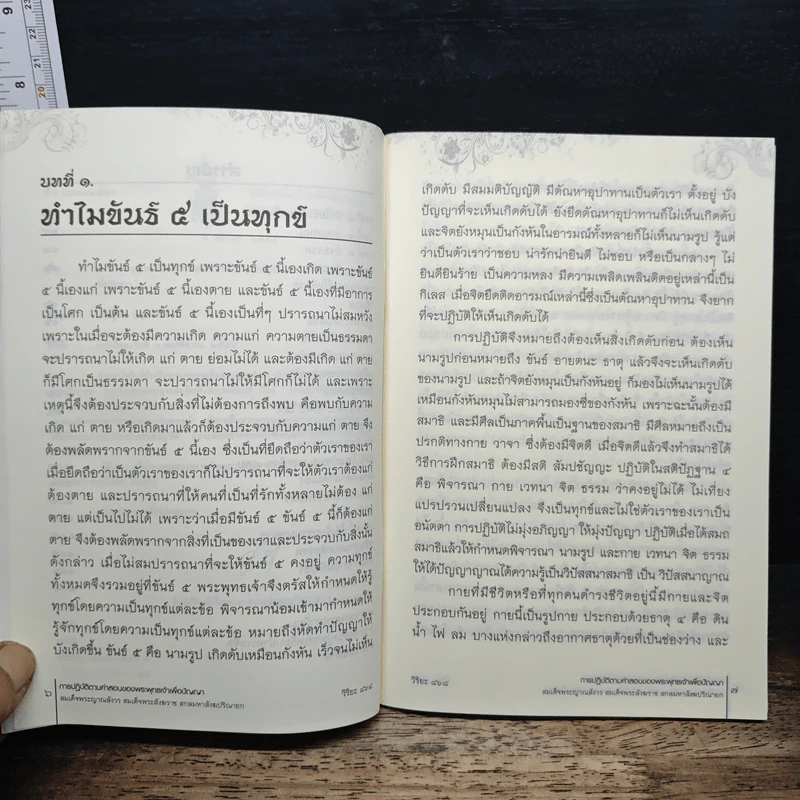 9
8
20
21
บทที่ ๑.
ทำไมขันธ์ ๕ เป็นทุกข์
ทำไมขันธ์ ๕ เป็นทุกข์ เพราะขันธ์ ๕ นี้เองเกิด เพราะขันธ์
๕ นี้เองแก่ เพราะขันธ์ ๕ นี้เองตาย และขันธ์ ๕ นี้เองที่มีอาการ
เป็นโศก เป็นต้น และขันธ์ ๕ นี้เองเป็นที่ๆ ปรารถนาไม่สมหวัง
เพราะในเมื่อจะต้องมีความเกิด ความแก่ ความตายเป็นธรรมดา
จะปรารถนาไม่ให้เกิด แก่ ตาย ย่อมไม่ได้ และต้องมีเกิด แก่ ตาย
ก็มีโศกเป็นธรรมดา จะปรารถนาไม่ให้มีโศกก็ไม่ได้ และเพราะ
เหตุนี้จึงต้องประจวบกับสิ่งที่ไม่ต้องการถึงพบ คือพบกับความ
เกิด แก่ ตาย หรือเกิดมาแล้วก็ต้องประจวบกับความแก่ ตาย จึง
ต้องพลัดพรากจากขันธ์ ๕ นี้เอง ซึ่งเป็นที่ยึดถือว่าตัวเราของเรา
เมื่อยึดถือว่าเป็นตัวเราของเราก็ไม่ปรารถนาที่จะให้ตัวเราต้องแก่
ต้องตาย และปรารถนาที่ให้คนที่เป็นที่รักทั้งหลายไม่ต้อง แก่
ตาย แต่เป็นไปไม่ได้ เพราะว่าเมื่อมีขันธ์ ๕ ขันธ์ ๕ นี้ก็ต้องแก่
ตาย จึงต้องพลัดพรากจากสิ่งที่เป็นของเราและประจวบกับสิ่งนั้น
ดังกล่าว เมื่อไม่สมปรารถนาที่จะให้ขันธ์ ๕ คงอยู่ ความทุกข์
ทั้งหมดจึงรวมอยู่ที่ขันธ์ ๕ พระพุทธเจ้าจึงตรัสให้กำหนดให้รู้
ทุกข์โดยความเป็นทุกข์แต่ละข้อ พิจารณาน้อมเข้ามากำหนดให้
รู้จักทุกข์โดยความเป็นทุกข์แต่ละข้อ หมายถึงหัดทำปัญญาให้
บังเกิดขึ้น ขันธ์ ๕ คือ นามรูป เกิดดับเหมือนกังหัน เร็วจนไม่เห็น
๖
การปฏิบัติตามคำสอนของพระพุทธเจ้าเพื่อปัญญา
สมเด็จพระญาณสังวร สมเด็จพระสังฆราช สกลมหาสังฆปริณายก
วิริยะ ๔๖๘
เกิดดับ มีสมมติบัญญัติ มีตัณหาอุปาทานเป็นตัวเรา ตั้งอยู่ บัง
ปัญญาที่จะเห็นเกิดดับได้ ยังยึดตัณหาอุปาทานก็ไม่เห็นเกิดดับ
และจิตยังหมุนเป็นกังหันในอารมณ์ทั้งหลายก็ไม่เห็นนามรูป รู้แต่
ว่าเป็นตัวเราว่าชอบ น่ารักน่ายินดี ไม่ชอบ หรือเป็นกลางๆ ไม่
ยินดียินร้าย เป็นความหลง มีความเพลิดเพลินติดอยู่เหล่านี้เป็น
กิเลส เมื่อจิตยึดติดอารมณ์เหล่านี้ซึ่งเป็นตัณหาอุปาทาน จึงยาก
ที่จะปฏิบัติให้เห็นเกิดดับได้
การปฏิบัติจึงหมายถึงต้องเห็นสิ่งเกิดดับก่อน ต้องเห็น
นามรูปก่อนหมายถึง ขันธ์ อายตนะ ธาตุ แล้วจึงจะเห็นเกิดดับ
ของนามรูป และถ้าจิตยังหมุนเป็นกังหันอยู่ ก็มองไม่เห็นนามรูปได้
เหมือนกังหันหมุนไม่สามารถมองซี่ของกังหัน เพราะฉะนั้นต้องมี
สมาธิ และมีศีลเป็นภาคพื้นเป็นฐานของสมาธิ มีศีลหมายถึงเป็น
ปรกติทางกาย วาจา ซึ่งต้องมีจิตดี เมื่อจิตดีแล้วจึงทำสมาธิได้
วิธีการฝึกสมาธิ ต้องมีสติ สัมปชัญญะ ปฏิบัติในสติปัฏฐาน ๔
คือ พิจารณา กาย เวทนา จิต ธรรม ว่าคงอยู่ไม่ได้ ไม่เที่ยง
แปรปรวนเปลี่ยนแปลง จึงเป็นทุกข์และไม่ใช่ตัวเราของเราเป็น
อนัตตา การปฏิบัติไม่มุ่งอภิญญา ให้มุ่งปัญญา ปฏิบัติเมื่อได้สมถ
สมาธิแล้วให้กำหนดพิจารณา นามรูป และกาย เวทนา จิต ธรรม
ให้ได้ปัญญาญาณได้ความรู้เป็นวิปัสสนาสมาธิ เป็น วิปัสสนาญาณ
กายที่มีชีวิตหรือที่ทุกคนดำรงชีวิตอยู่นี้มีกายและจิต
ประกอบกันอยู่ กายนี้เป็นรูปกาย ประกอบด้วยธาตุ ๔ คือ ดิน
น้ำ ไฟ ลม บางแห่งกล่าวถึงอากาศธาตุด้วยที่เป็นช่องว่าง และ
วิริยะ ๔๖๘
การปฏิบัติตามคำสอนของพระพุทธเจ้าเพื่อปัญญา
สมเด็จพระญาณสังวร สมเด็จพระสังฆราช สกลมหาสังฆปริณายก
๗